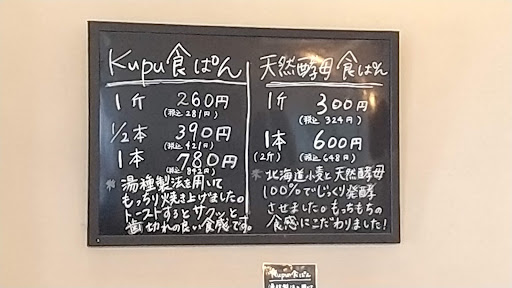 Kupu食ぱん
1斤 260円
(税込 281円)
1/2本 390円
(税込 421円)
1本 780円
(税込 842円)
※湯種製法を用いて
もっちり焼き上げました。
トーストするとサクッと
歯切れの良い食感です。
天然酵母食ぱん
1斤 300円
(税込 324円)
1本 600円
(2斤) (税込 648円)
※北海道小麦と天然酵母
100%でじっくり発酵
させました。もっちもちの
食感にこだわりました!
Kupu食ぱん